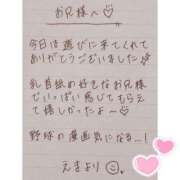 お兄様へ♡
今日は遊びに来てくれて
ありがとうございました
乳首舐め好きなお兄様
でいっぱい感じてもらえ
て嬉しかったよ〜
野球の漫画気になる…!
えまより